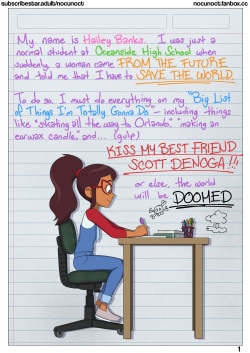 subscribestar.adult/nocunoct
nocunoct.fanbox.cc
My name is Hailey Banks. I was just a
normal student at Oceanside High School when
suddenly, a woman came FROM THE FUTURE
and told me that I have to SAVE THE WORLD.
To do so, I must do everything on my "Big List
of Things I'm Totally Gonna Do" – including things
like "skating all the way to Orlando," "making an
earwax candle," and... (gulp)
KISS MY BEST FRIEND
SCOTT DENOGA!!!
or else, the world
will be DOOMED
1